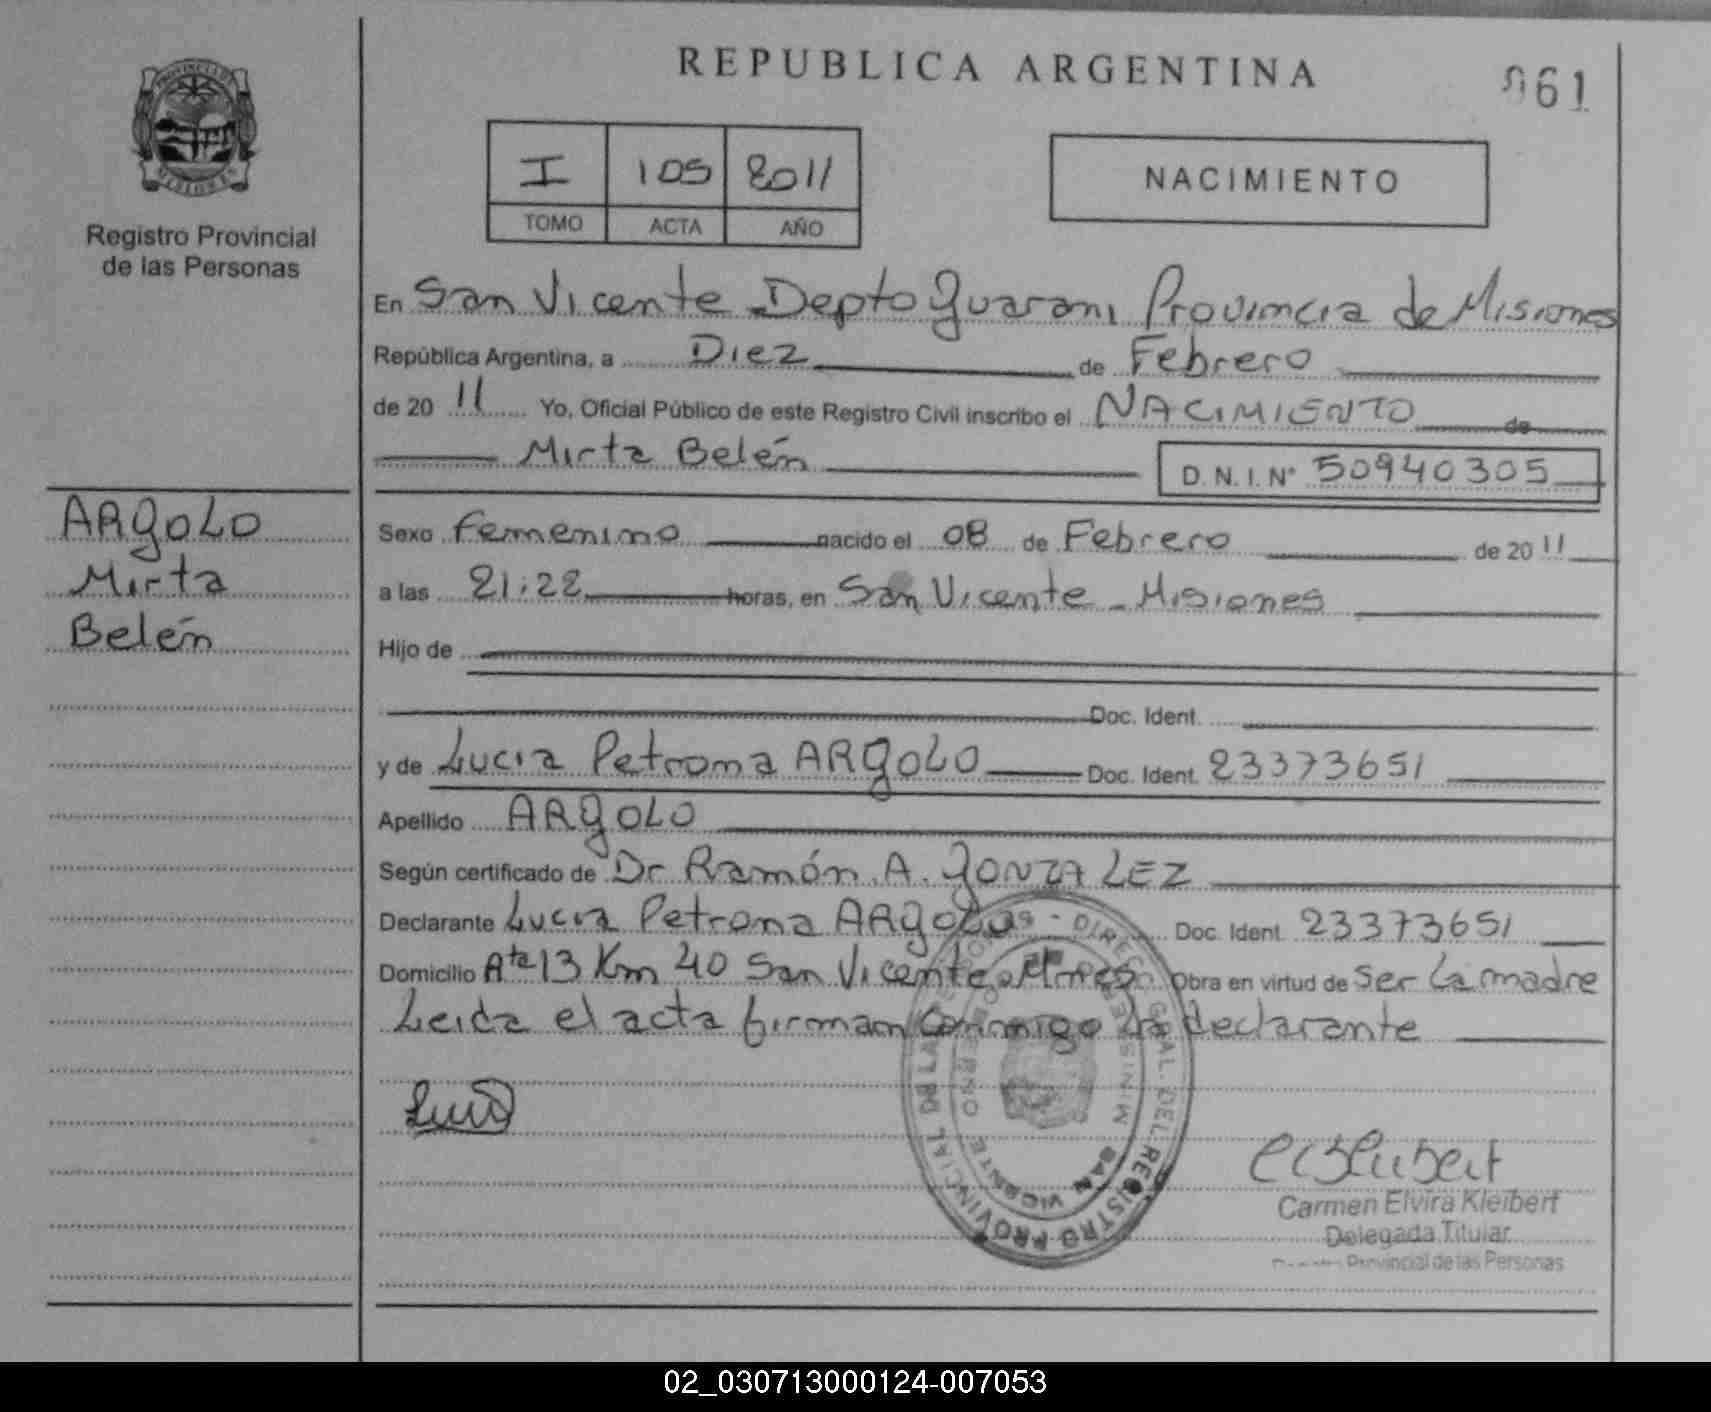 REPUBLICA ARGENTINA
061
PROVINCIA DE
MISIONES
Registro Provincial
de las Personas
I 105 2011
TOMO ACTA AÑO
NACIMIENTO
En San Vicente Depto Guarani Provincia de Misiones
República Argentina, a Diez de Febrero
de 20 11 Yo, Oficial Público de este Registro Civil inscribo el NACIMIENTO de
Mirta Belén D.N.I.N° 50940305
ARGOLO
Mirta
Belén
Sexo Femenino nacido el 08 de Febrero de 20 11
a las 21:22 horas, en San Vicente - Misiones
Hijo de
Doc. Ident.
y de Lucia Petrona ARGOLO Doc. Ident. 23373651
Apellido ARGOLO
Según certificado de Dr Ramón A. GONZALEZ
Declarante Lucia Petrona ARGOLO Doc. Ident. 23373651
Domicilio Rta 13 Km 40 San Vicente Mnes Obra en virtud de Ser La madre
Leida el acta firman conmigo la declarante
DIREC. GRAL. DEL REGISTRO PROVINCIAL DE LAS PERSONAS
MINISTERIO DE GOBIERNO
SAN VICENTE
Carmen Elvira Kleibert
Delegada Titular
Provincial de las Personas
02_030713000124-007053